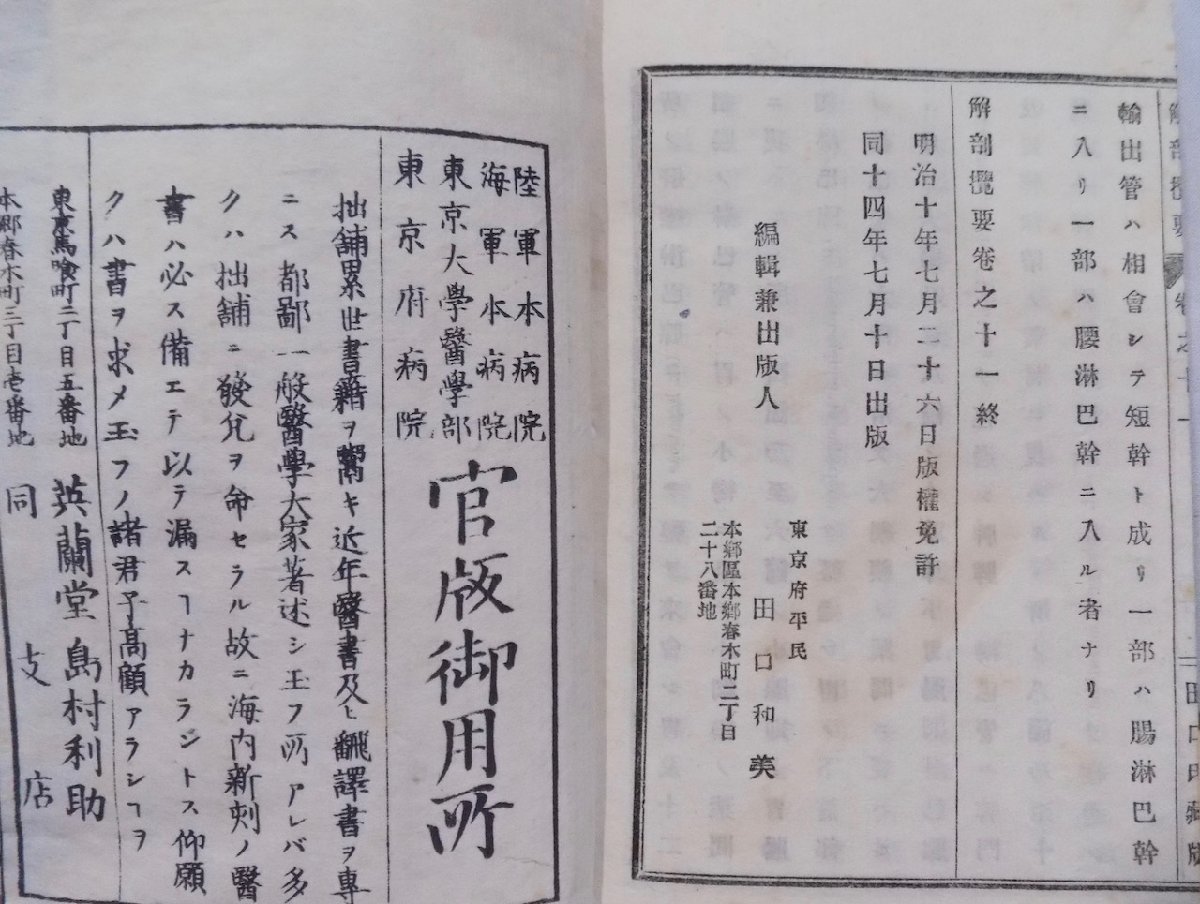 解剖攬要 卷之十一
輸出管ハ相會シテ短幹ト成リ一部ハ腸淋巴幹
ニ入リ一部ハ腰淋巴幹ニ入ル者ナリ
解剖攬要卷之十一終
明治十年七月二十六日版權免許
同十四年七月十日出版
東京府平民
編輯兼出版人 田口和美
本郷區本郷春木町二丁目
二十八番地
陸軍本病院
海軍本病院
東京大學醫學部
東京府病院
官版御用所
拙舗累世書籍ヲ鬻キ近年醫書及ヒ飜譯書ヲ專
ニス都鄙一般醫學大家著述シ玉フ所アレバ多
クハ拙舗ニ發兌ヲ命セラル故ニ海内新刻ノ醫
書ハ必ス備エテ以テ漏スヿナカラシトス仰願
クハ書ヲ求メ玉フノ諸君子高顧アラシヿヲ
東京馬喰町二丁目五番地 英蘭堂 島村利助
本郷春木町三丁目壱番地 同 支店